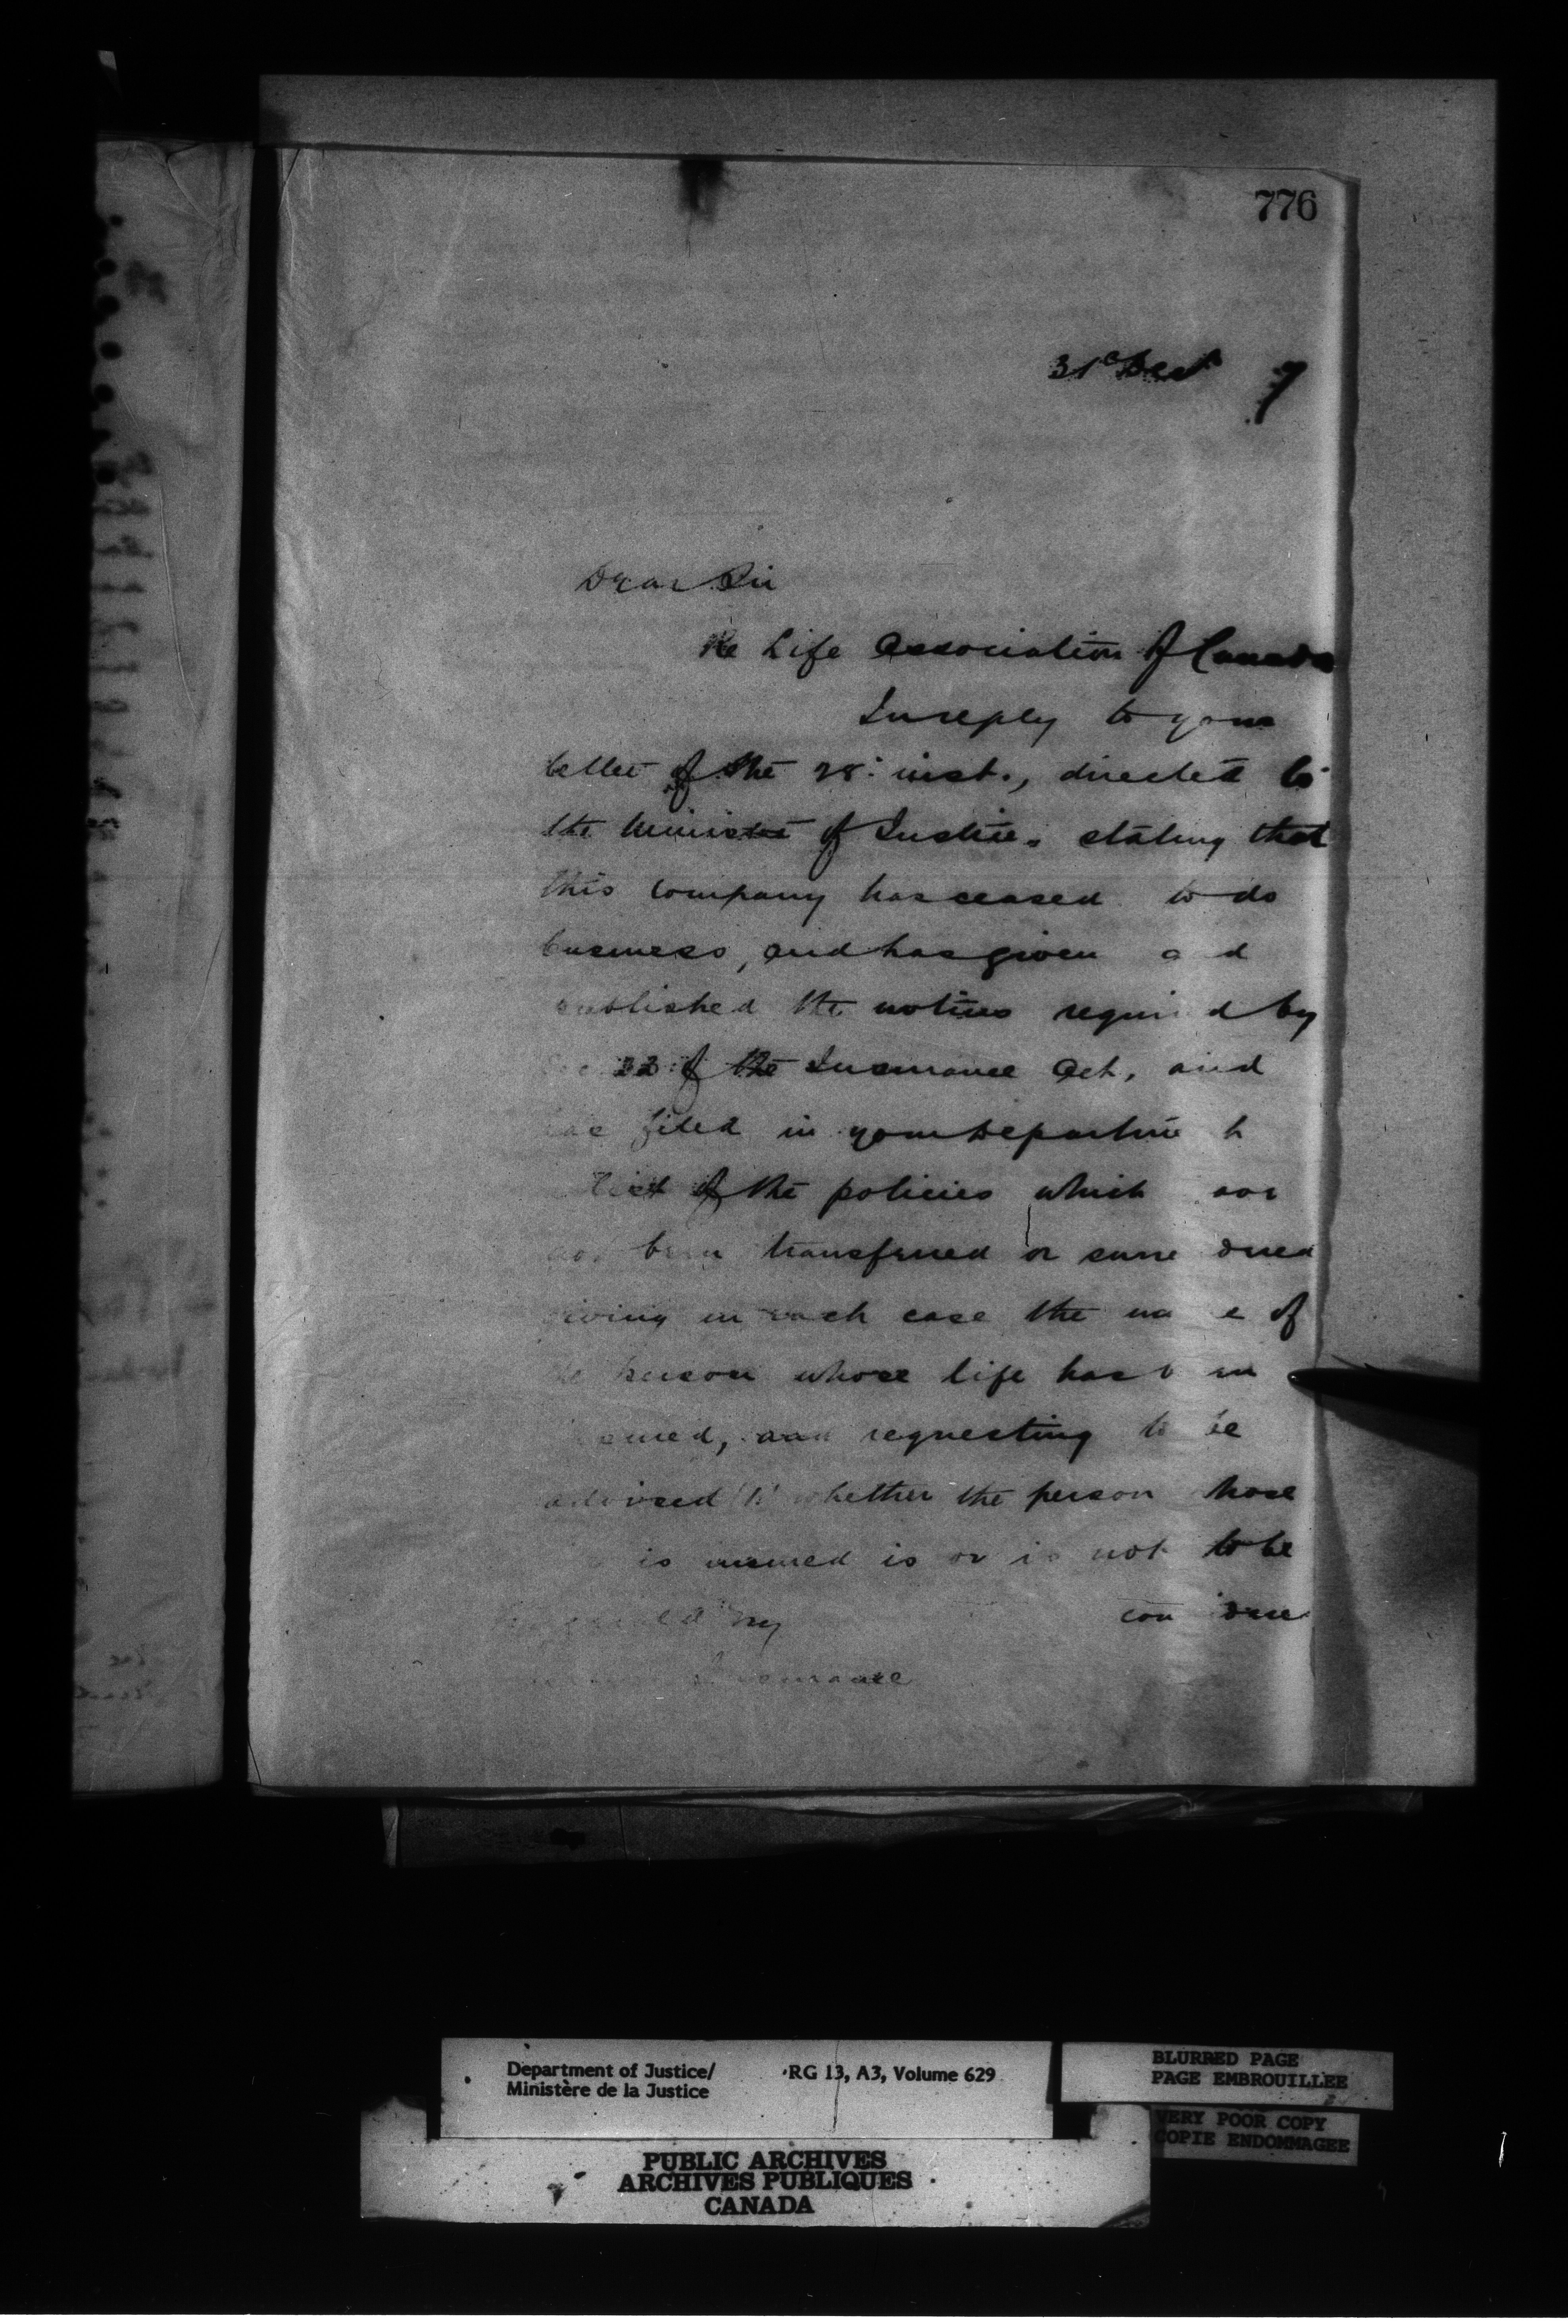 776
31st Decr 7
Dear Sir
Re Life Association of Canada
In reply to your
letter of the 28th inst., directed to
the Minister of Justice, stating that
this company has ceased to do
business, and has given a d
published the notices requi d by
22 of the Insurance Act, and
has filed in your Departme
list of the policies which
been transferred or surre dered
giving in each case the na e of
he person whose life has b en
sured, and requesting to be
advised (1) whether the person hose
is insured is or is not to be
con dere
Insurance
Department of Justice/
Ministère de la Justice
RG 13, A3, Volume 629
BLURRED PAGE
PAGE EMBROUILLEE
VERY POOR COPY
COPIE ENDOMMAGEE
PUBLIC ARCHIVES
ARCHIVES PUBLIQUES
CANADA